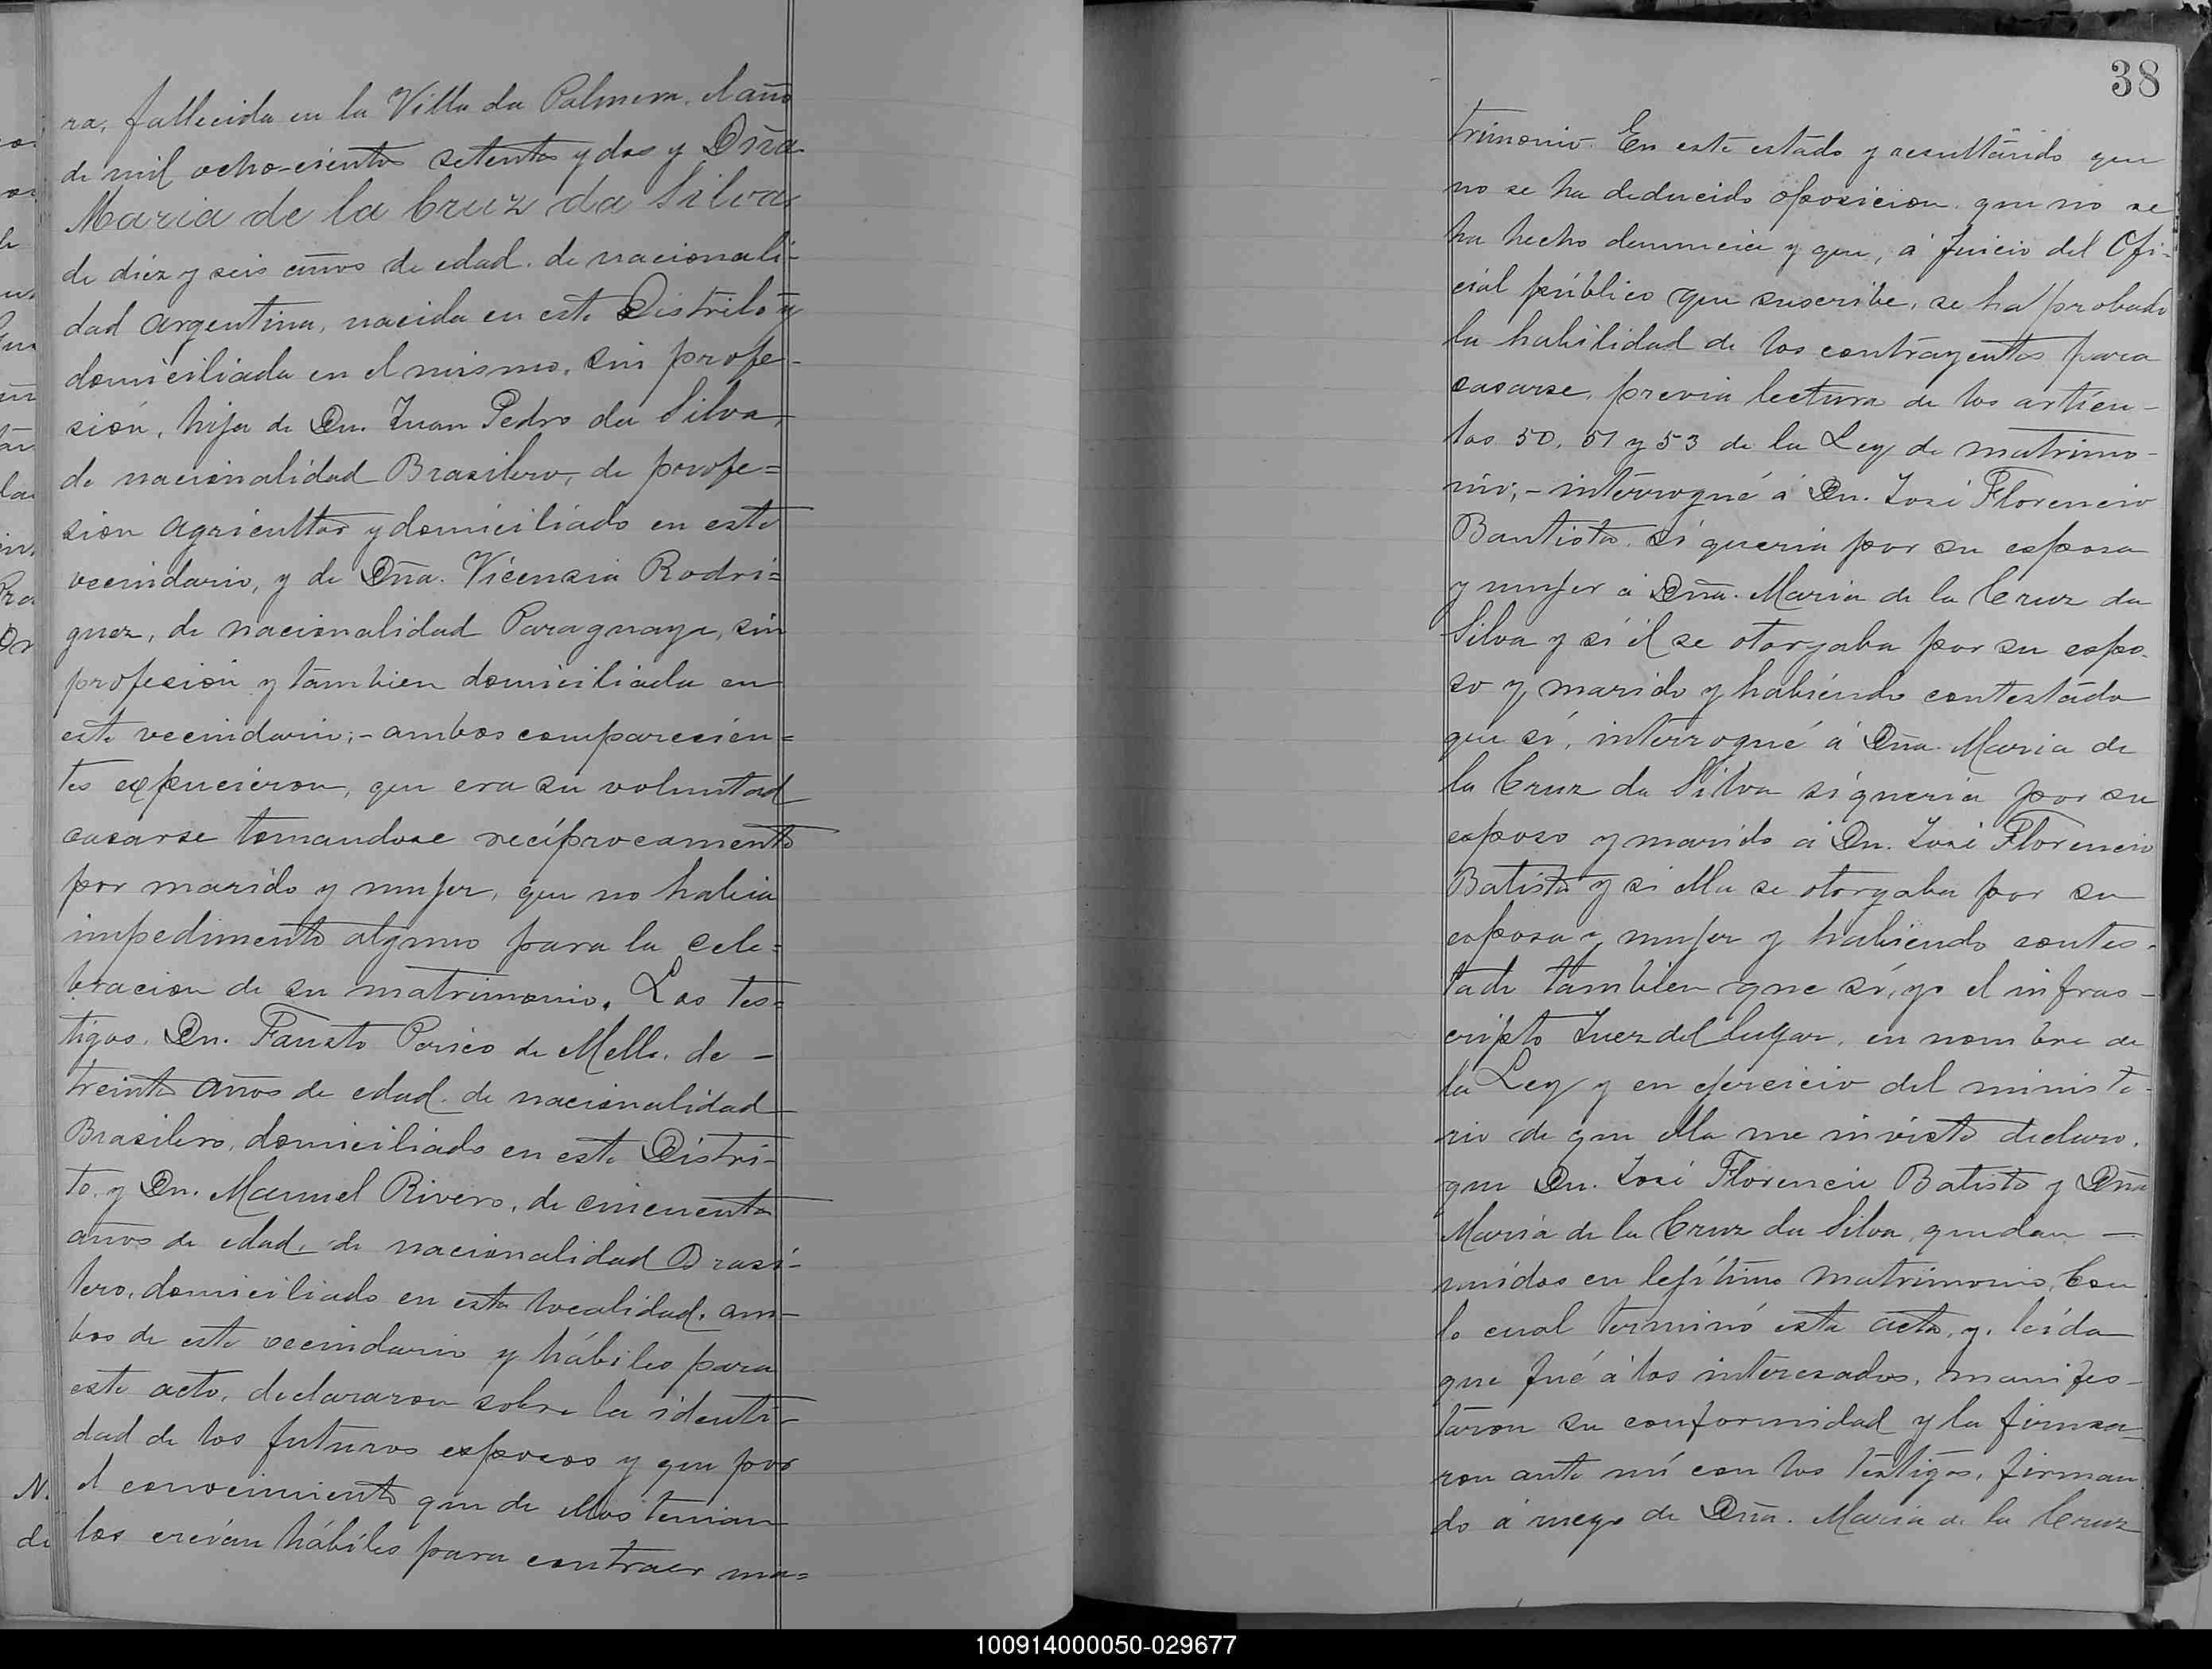 ra, fallecida en la Villa da Palmera, el año
de mil ocho-cientos setenta y dos y Dña
Maria de la Cruz da Silva
de diez y seis años de edad. de nacionali-
dad argentina, nacida en este Distrito y
domiciliada en el mismo, sin profe-
sión, hija de Dn. Juan Pedro da Silva,
de nacionalidad Brasilero, de profe=
sion agricultor y domiciliado en este
vecindario, y de Dña. Vicensia Rodri=
guez, de nacionalidad Paraguaya, sin
profesión y tambien domiciliada en
este vecindario;- ambos comparecien=
tes expucieron, que era su voluntad
casarse tomandose recíprocamente
por marido y mujer, que no habia
impedimento alguno para la cele=
bracion de su matrimonio. Los tes=
tigos. Dn. Fausto de Mello. de -
treinta años de edad. de nacionalidad
Brasilero, domiciliado en este Distri-
to. y Dn. Manuel Rivero, de cincuenta
años de edad, de nacionalidad Brasi-
lero, domiciliado en esta localidad, am-
bos de este vecindario y hábiles para
este acto, declararon sobre la identi-
dad de los futuros esposos y que por
el conocimiento que de ellos tenian
los creían hábiles para contraer ma=
N.
di
38
trimonio. En este estado y resultando que
no se ha deducido oposicion, que no se
ha hecho denuncia y que, á juicio del Ofi-
cial público que suscribe, se ha probado
la habilidad de los contrayentes para
casarse, previa lectura de los artícu-
los 50, 51 y 53 de la Ley de matrimo-
nio;- interrogué á Dn. José Florencio
Bautista, sí queria por su esposa
y mujer á Dña. Maria de la Cruz da
Silva y sí él se otorgaba por su espo-
so y marido y habiendo contestado
que sí, interrogué á Dña. Maria de
la Cruz da Silva sí queria por su
esposo y marido á Dn. José Florencio
Batista y si ella se otorgaba por su
esposa y mujer y habiendo contes-
tado tambien que sí, yo el infras-
cripto Juez del lugar, en nombre de
la Ley y en ejercicio del ministe-
rio de que ella me inviste declaro,
que Dn. José Florencio Batista y Dña
Maria de la Cruz da Silva, quedan -
unidos en lejítimo matrimonio. Con
lo cual terminó esta acta, y, leída
que fué á los interesados, manifes-
taron su conformidad y la firma-
ron ante mí con los testigos, firman
do á ruego de Dña. Maria de la Cruz
100914000050-029677